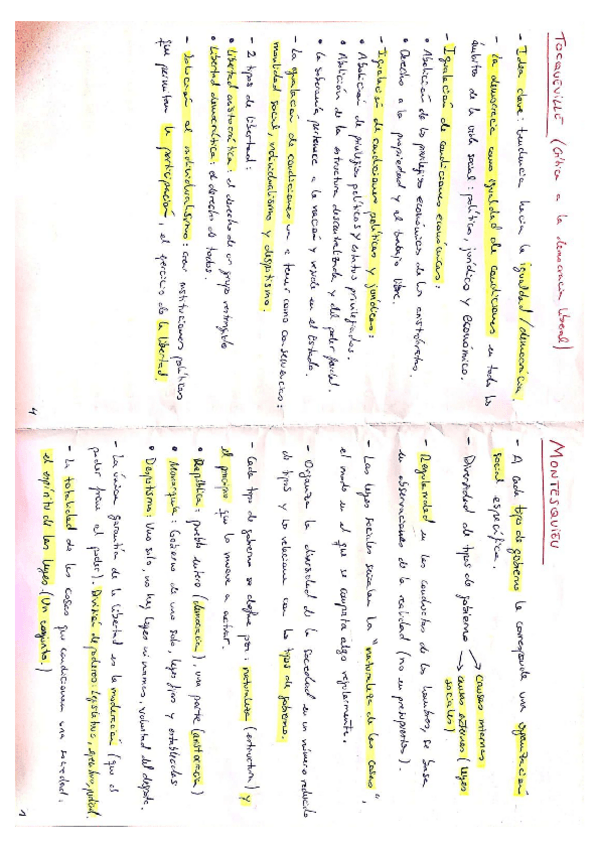 TOCQUEVILLE (Crítica a la democracia liberal)
- Idea clave: tendencia hacia la igualdad/democracia.
- La democracia como igualdad de condiciones en todos los
ámbitos de la vida social: política, jurídico y económico.
- Igualación de condiciones económicas:
• Abolición de los privilegios económicos de los aristócratas.
• Derecho a la propiedad y al trabajo libre.
- Igualación de condiciones políticas y jurídicas:
• Abolición de privilegios políticos y estatus privilegiados.
• Abolición de la estructura descentralizada y del poder feudal.
• La soberanía pertenece a la nación y reside en el Estado.
- La igualación de condiciones va a tener como consecuencias:
movilidad social, individualismo y despotismo.
- 2 tipos de libertad:
• Libertad aristocrática: el derecho de un grupo restringido
• Libertad democrática: el derecho de todos.
- Solución al individualismo: crear instituciones políticas
que permitan la participación, el ejercicio de la libertad.
4
MONTESQUIEU
- A cada tipo de gobierno le corresponde una organización
social específica.
- Diversidad de tipos de gobierno → causas internas
→ causas externas (leyes
sociales).
- Regularidad en las conductas de los hombres, se basa
en observaciones de la realidad (no en presupuestos).
- Las leyes sociales señalan la "naturaleza de las cosas",
el modo en el que se comporta algo regularmente.
- Organiza la diversidad de la sociedad en un número reducido
de tipos y lo relaciona con los tipos de gobierno.
- Cada tipo de gobierno se define por: naturaleza (estructura) y
el principio que lo mueve a actuar.
• República: pueblo entero (democracia), una parte (aristocracia)
• Monarquía: Gobierno de uno solo, leyes fijas y establecidas
• Despotismo: Uno solo, no hay leyes ni normas, voluntad del déspota.
- La única garantía de la libertad es la moderación (que el
poder frene al poder). División de poderes: Legislativo, ejecutivo, judicial.
- La totalidad de las cosas que condicionan una sociedad:
el espíritu de las leyes (Un conjunto.)
1